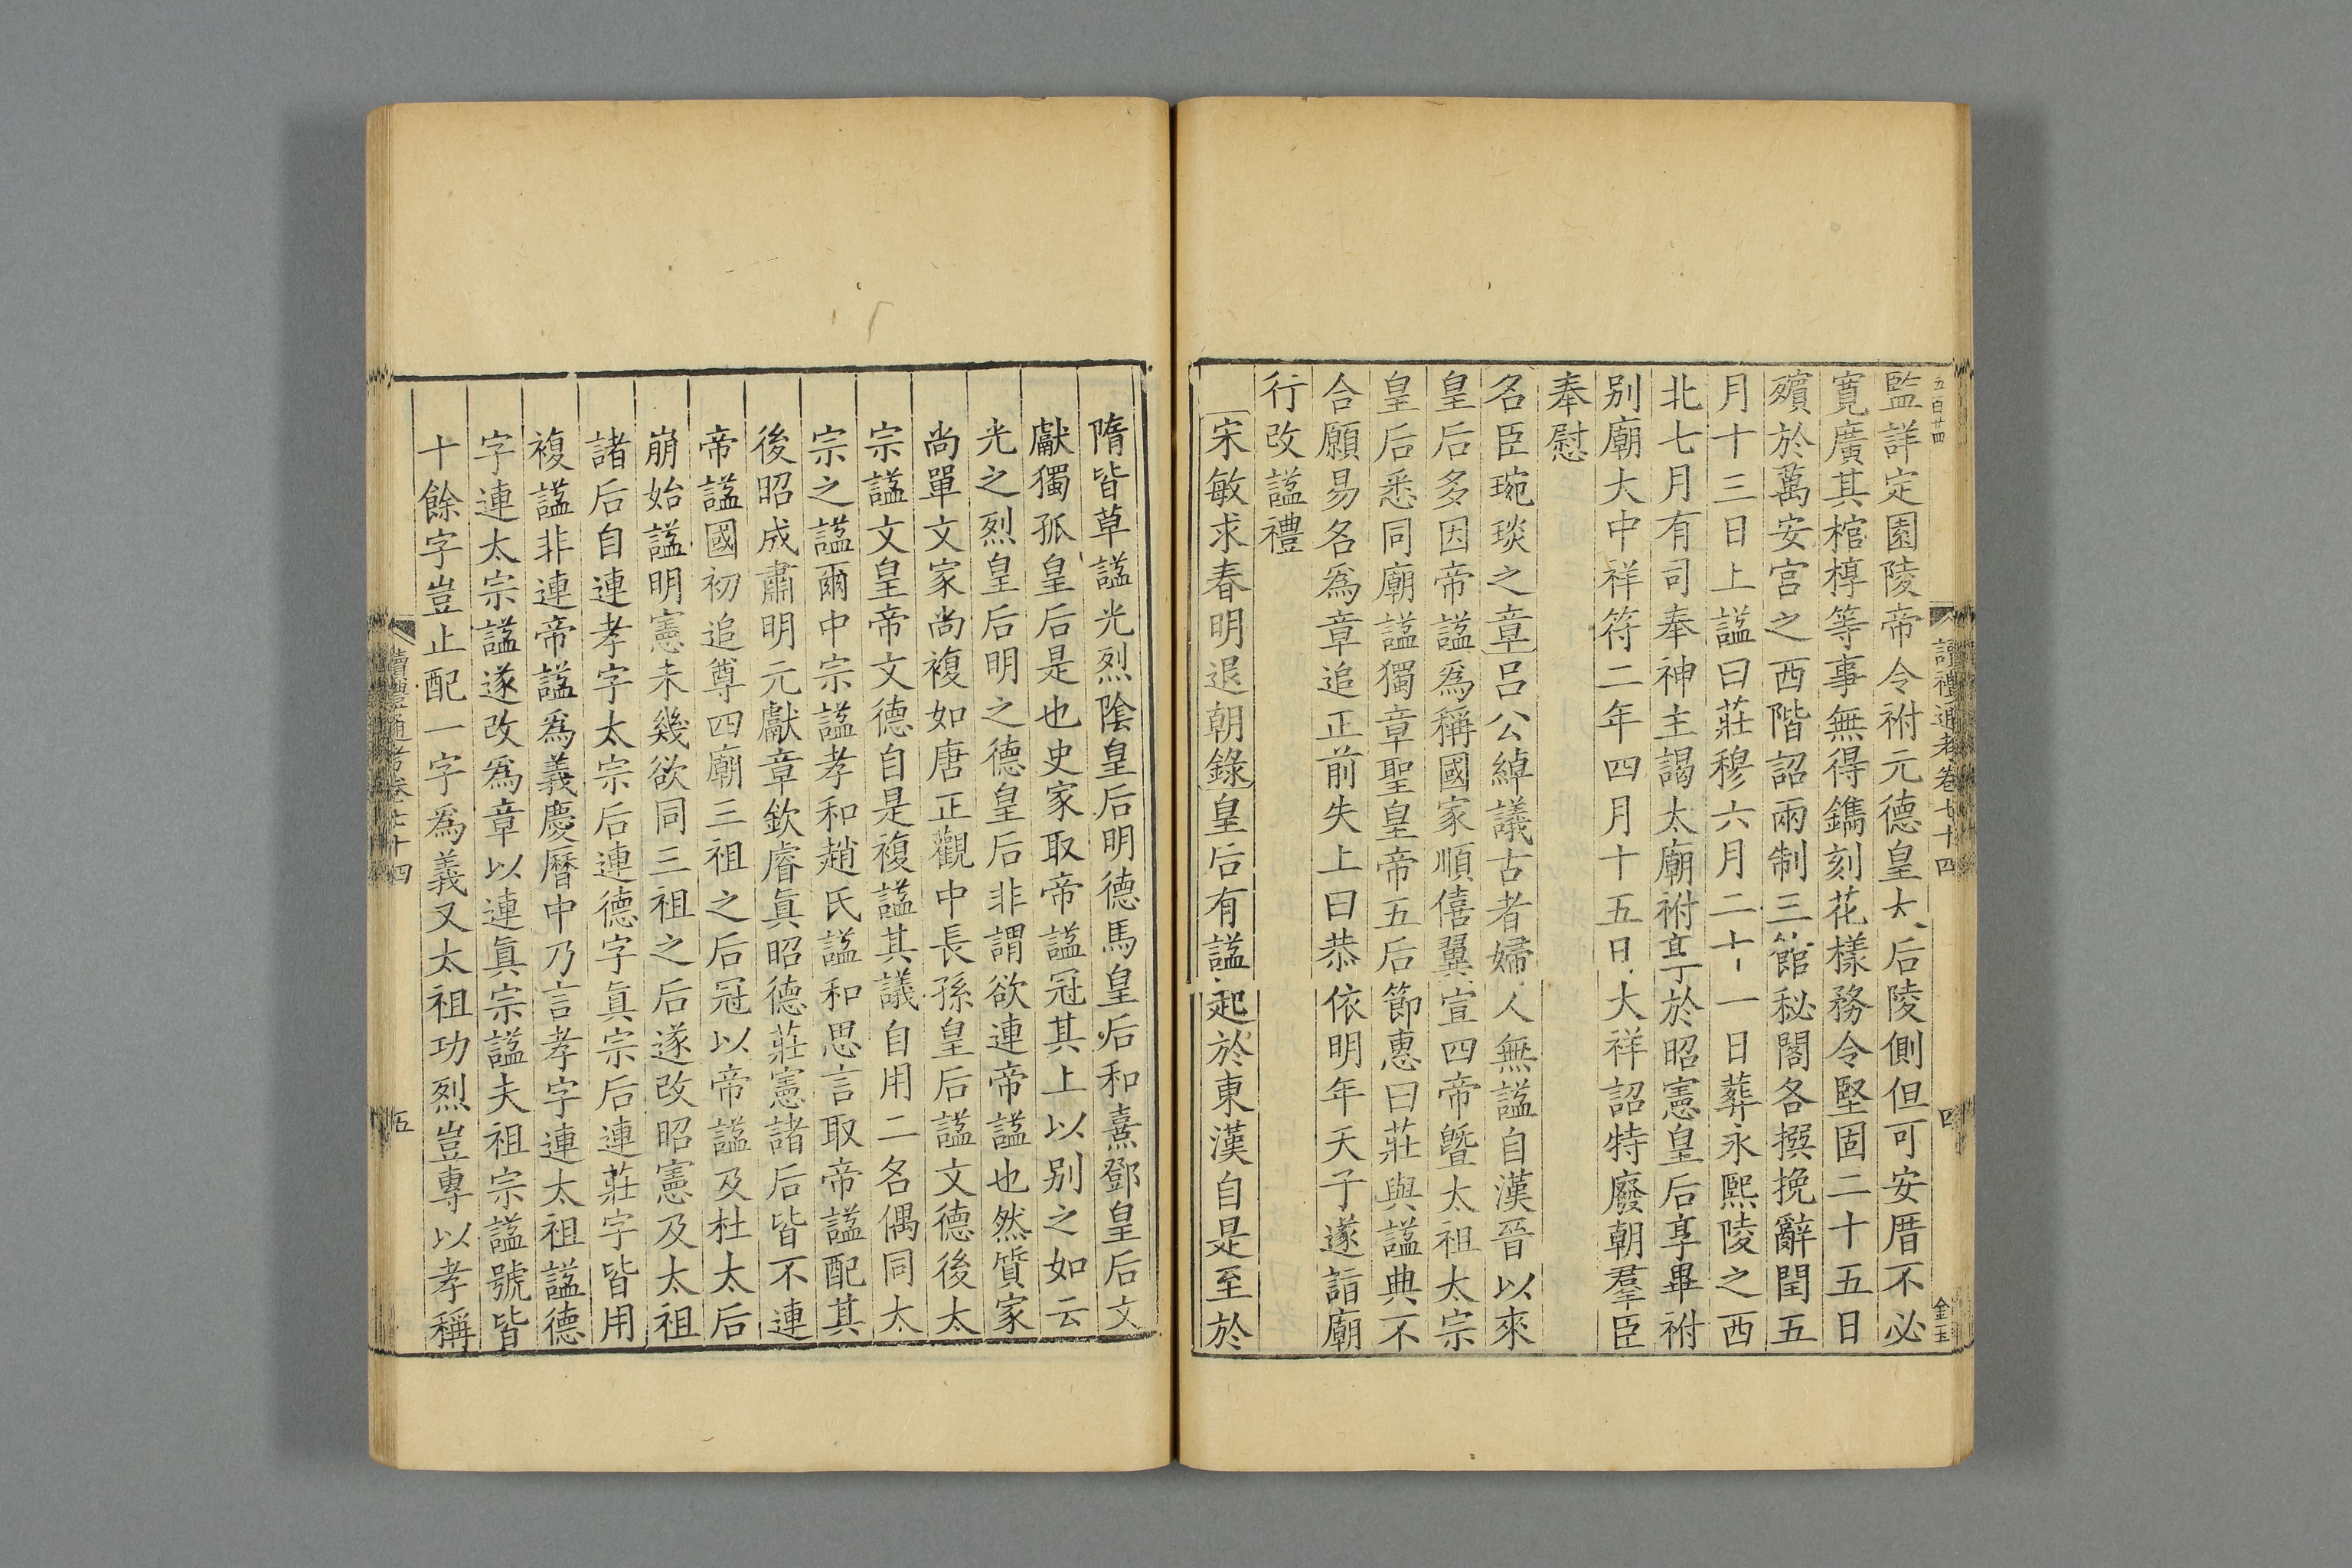 五百廿四
讀禮通考卷七十四
四
金玉
監詳定園陵帝令祔元德皇太后陵側但可安厝不必
寬廣其棺椁等事無得鐫刻花樣務令堅固二十五日
殯於萬安宮之西階詔兩制三館秘閣各撰挽辭閏五
月十三日上諡曰莊穆六月二十一日葬永熙陵之西
北七月有司奉神主謁太廟祔享於昭憲皇后享畢祔
别廟大中祥符二年四月十五日大祥詔特廢朝羣臣
奉慰
名臣琬琰之章呂公綽議古者婦人無諡自漢晉以來
皇后多因帝諡爲稱國家順僖翼宣四帝曁太祖太宗
皇后悉同廟諡獨章聖皇帝五后節惠曰莊與諡典不
合願易名爲章追正前失上曰恭依明年天子遂詣廟
行改諡禮
宋敏求春明退朝錄皇后有諡起於東漢自是至於
隋皆草諡光烈陰皇后明德馬皇后和熹鄧皇后文
獻獨孤皇后是也史家取帝諡冠其上以别之如云
光之烈皇后明之德皇后非謂欲連帝諡也然質家
尚單文家尚複如唐正觀中長孫皇后諡文德後太
宗諡文皇帝文德自是複諡其議自用二名偶同太
宗之諡爾中宗諡孝和趙氏諡和思言取帝諡配其
後昭成肅明元獻章欽睿眞昭德莊憲諸后皆不連
帝諡國初追尊四廟三祖之后冠以帝諡及杜太后
崩始諡明憲未幾欲同三祖之后遂改昭憲及太祖
諸后自連孝字太宗后連德字眞宗后連莊字皆用
複諡非連帝諡爲義慶曆中乃言孝字連太祖諡德
字連太宗諡遂改爲章以連眞宗諡夫祖宗諡號皆
十餘字豈止配一字爲義又太祖功烈豈專以孝稱
讀禮通考卷七十四
五